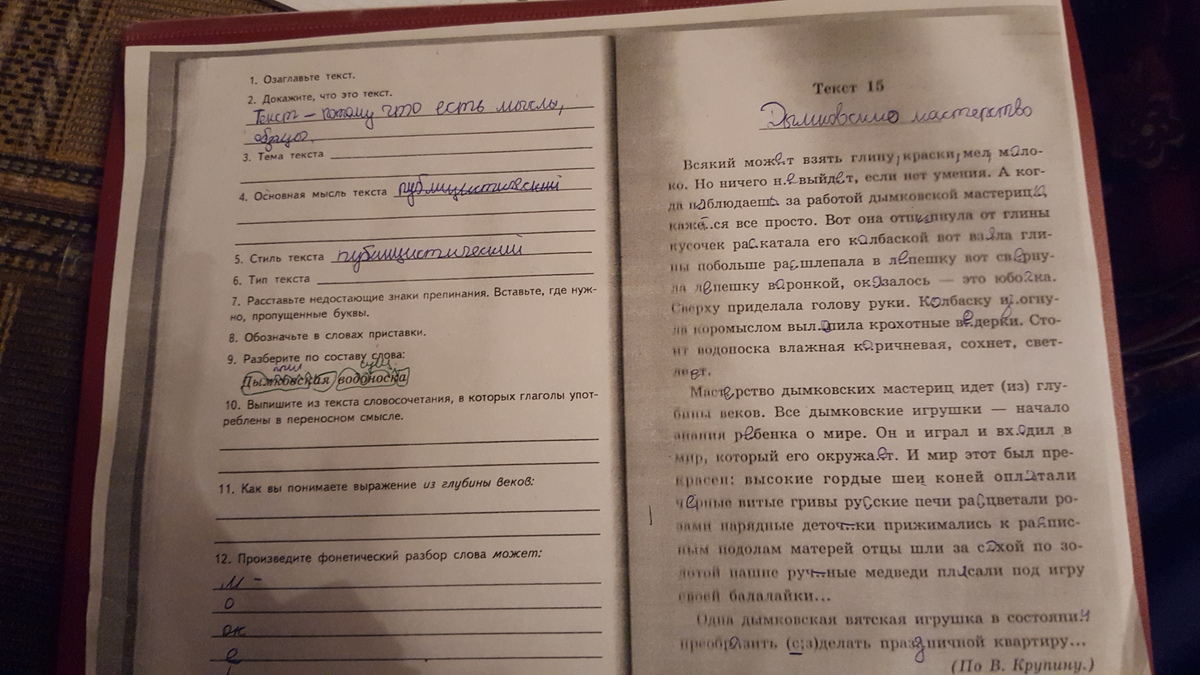 1. Озаглавьте текст.
2. Докажите, что это текст.
Текст – потому что есть мысль,
образ.
3. Тема текста
4. Основная мысль текста публицистический
5. Стиль текста публицистический
6. Тип текста
7. Расставьте недостающие знаки препинания. Вставьте, где нуж-
но, пропущенные буквы.
8. Обозначьте в словах приставки.
9. Разберите по составу слова:
прил сущ
Дымковская водоноска
10. Выпишите из текста словосочетания, в которых глаголы упот-
реблены в переносном смысле.
11. Как вы понимаете выражение из глубины веков:
12. Произведите фонетический разбор слова может:
м –
о
ж
е
Текст 15
Дымковское мастерство
Всякий может взять глину, краски, мел, моло-
ко. Но ничего не выйдет, если нет умения. А ког-
да наблюдаешь за работой дымковской мастерицы,
каже..ся все просто. Вот она отщипнула от глины
кусочек раскатала его колбаской вот взяла гли-
ны побольше расшлепала в лепешку вот сверну-
ла лепешку воронкой, оказалось — это юбочка.
Сверху приделала голову руки. Колбаску изогну-
ла коромыслом вылепила крохотные ведерки. Сто-
ит водоноска влажная коричневая, сохнет, свет-
леет.
Мастерство дымковских мастериц идет (из) глу-
бины веков. Все дымковские игрушки — начало
знания ребенка о мире. Он и играл и входил в
мир, который его окружает. И мир этот был пре-
красен: высокие гордые шеи коней оплетали
черные витые гривы русские печи расцветали ро-
зами нарядные деточки прижимались к распис-
ным подолам матерей отцы шли за сохой по зо-
лотой пашне ручные медведи плясали под игру
своей балалайки...
Одна дымковская вятская игрушка в состоянии
преобразить (с;з)делать праздничной квартиру...
(По В. Крупину.)